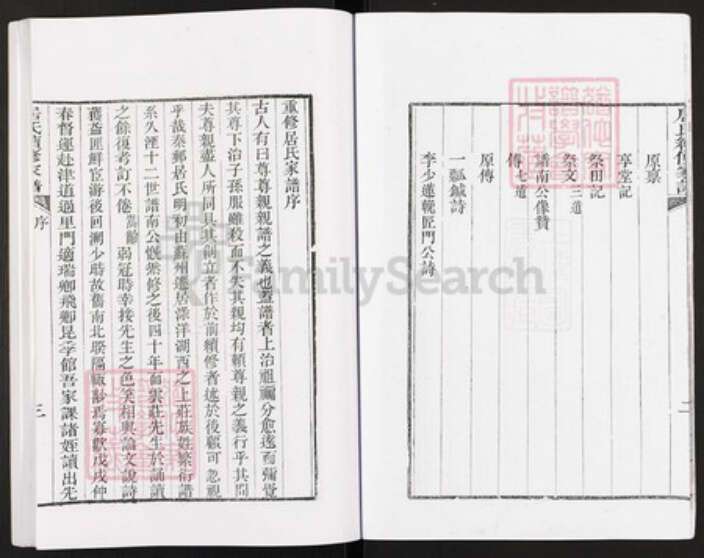 原璟
享堂記
祭田記
祭文三道
譜南公像贊
傳七道
原傳
一瓢鍼詩
李少蓮輓匠門公詩
二
重修居氏家譜序
古人有曰尊尊親親譜之義也蓋譜者上治祖禰分愈遠而彌覺
其尊下治子孫服雖殺而不失其親均有賴尊親之義行乎其間
夫尊親盡人所同具其創立者作於前續修者述於後輟可忽視
乎哉泰郵居氏明初由蘇州遷居漾洋湖西之上莊族姓繁衍譜
系久湮十二世譜南公慨然修之後四十年而雲莊先生於誦讀
之餘復考訂不倦 弱冠時幸接先生之色笑相與論文說詩
獲益匪鮮宦游後回溯少時故舊南北睽隔輒渺焉寡歡戊戌仲
春督運赴津道過里門適瑞卿飛卿昆季館吾家課諸姪讀出先
居氏續修家譜
序
三
FamilySearch